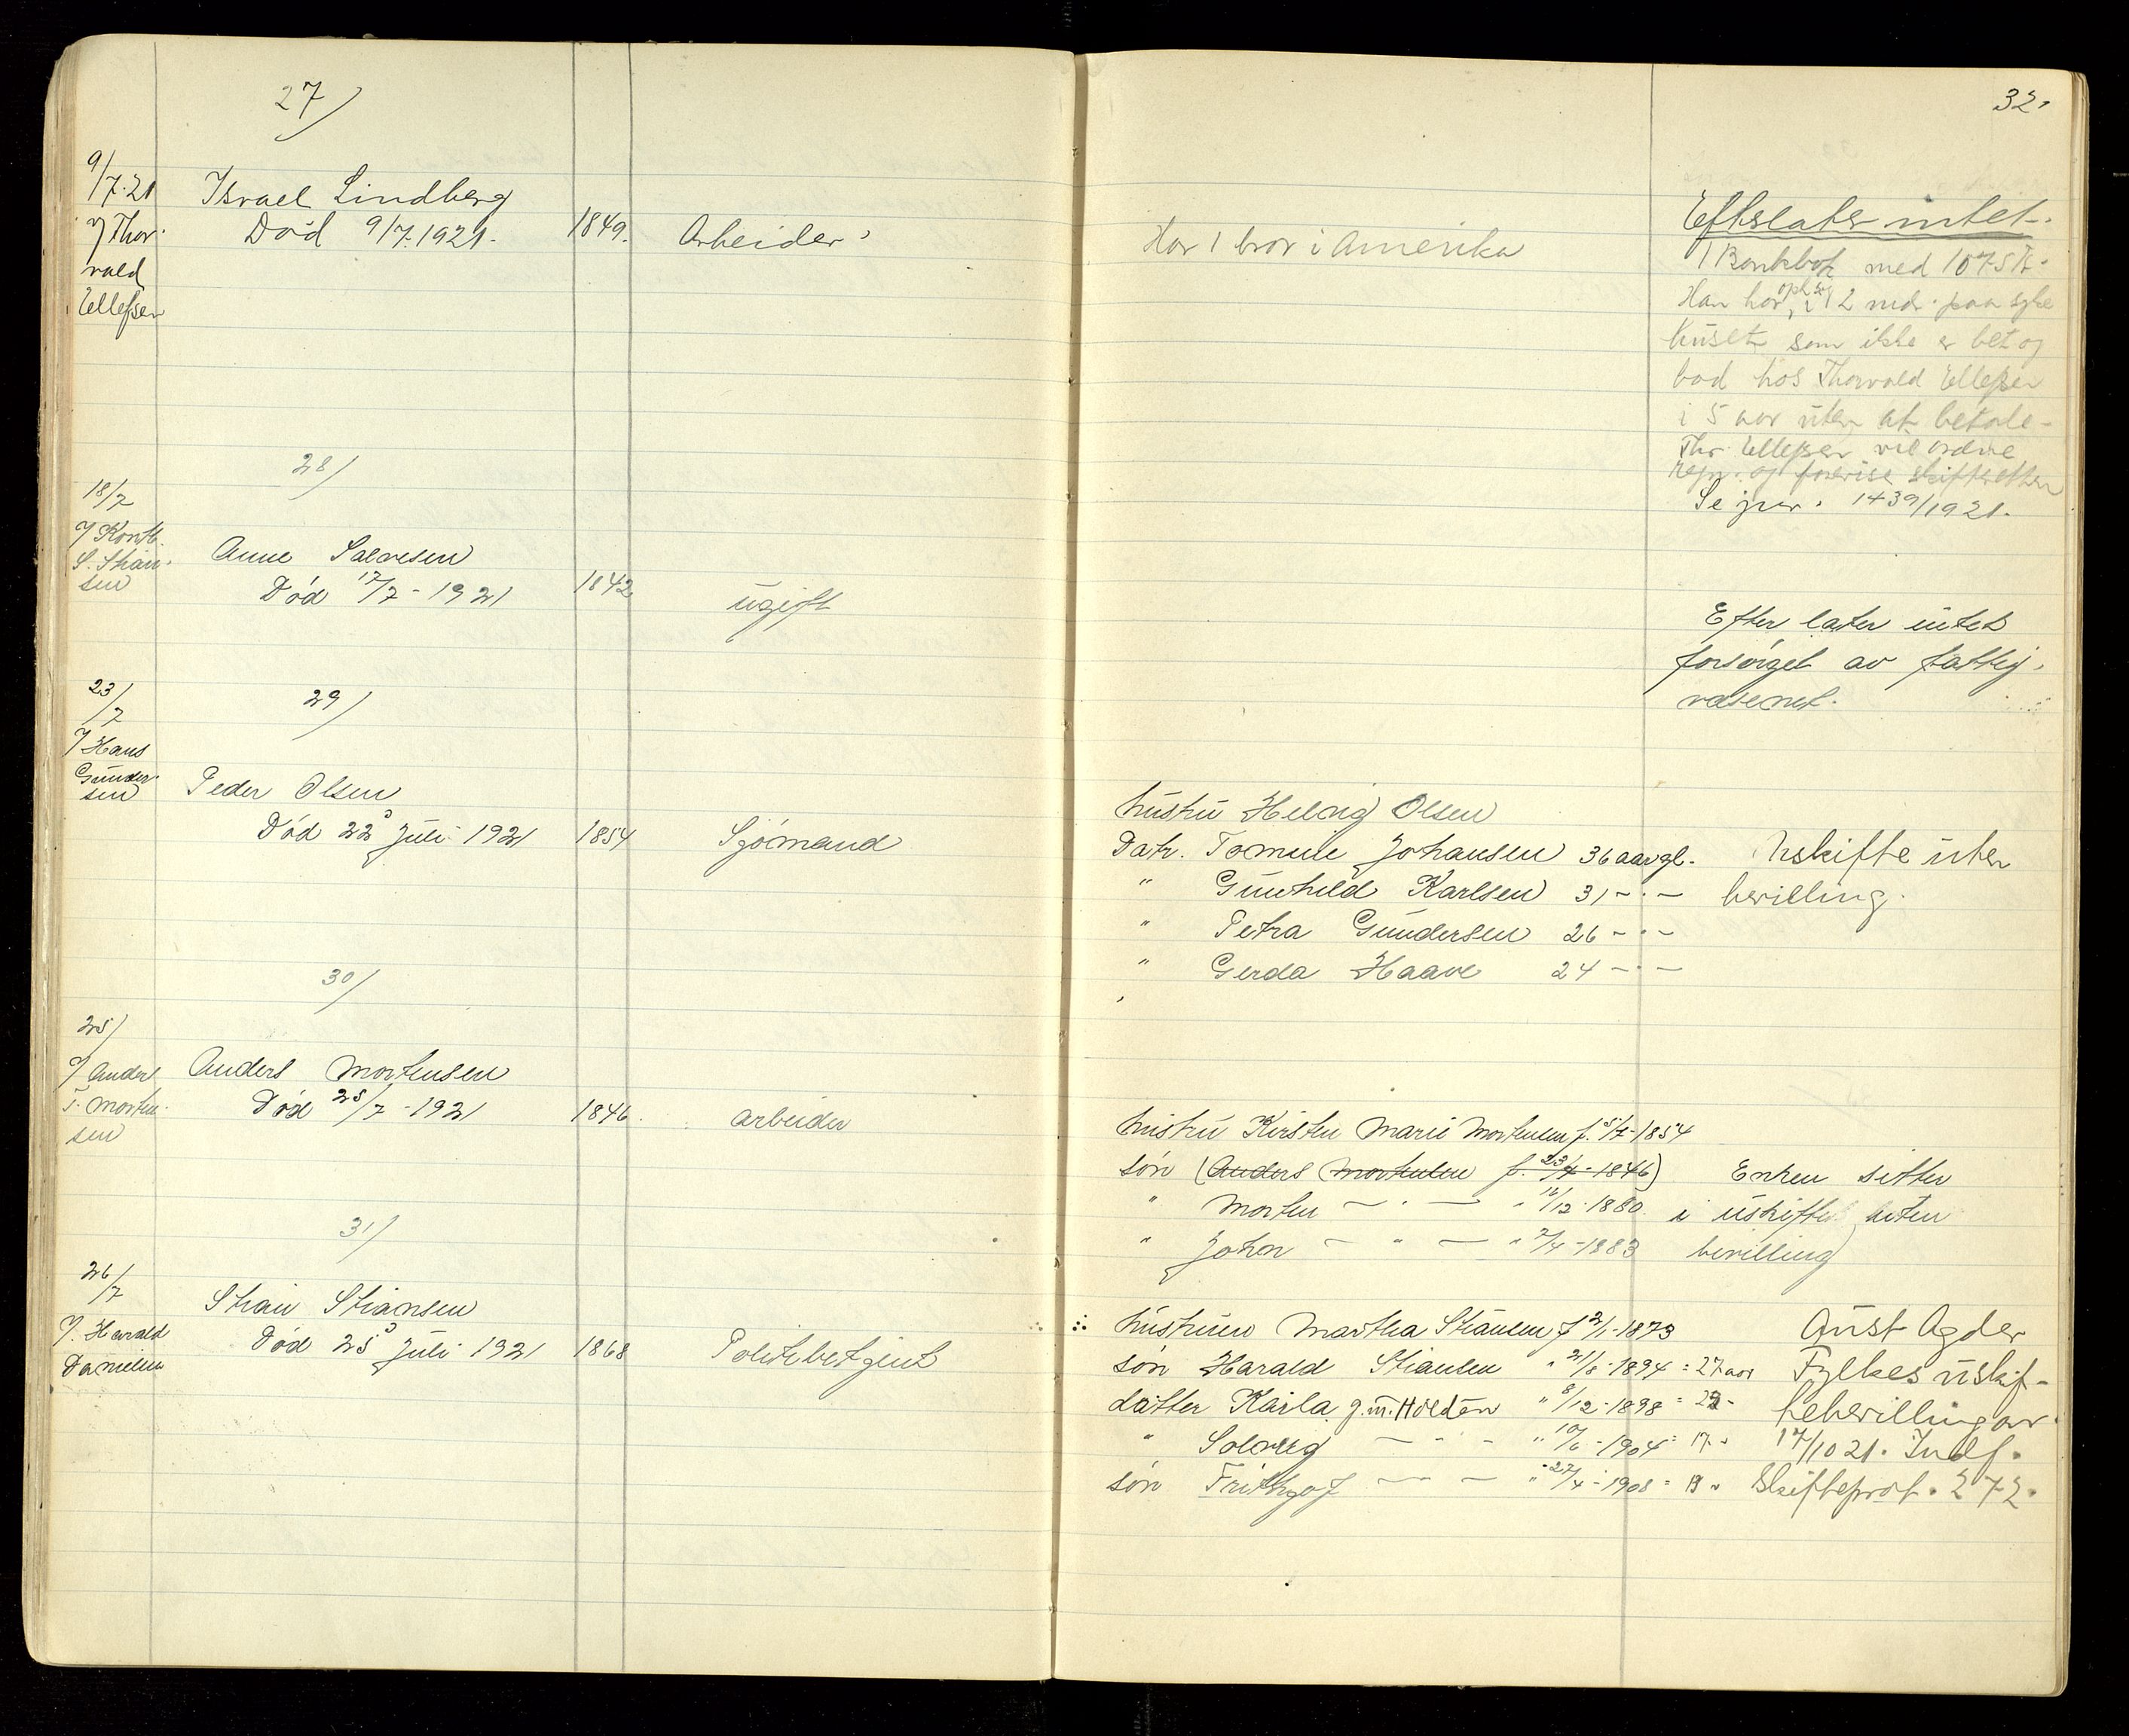 32.
27/
9/7-21
v/ Thor-
vald
Ellefsen
Israel Lindberg
Död 9/7.1921.
1849.
Arbeider
Har 1 bror i Amerika
Efterlater intet.
1 Bankbok med 1075 Kr.
Han har opholdt sig i 12 md. paa syke
huset som ikke er bet og
bod hos Thorvald Ellefsen
i 5 aar uten at betale-
Thv. Ellefsen vil ordne
regn. og forevise skifteretten
Se jnr. 1439/1921.
28/
18/7
v/ Kontb.
S. Stian-
sen
Anne Salvesen
Död 17/7-1921
1842
ugift
Efterlater intet
forsörget av fattig-
væsenet.
29/
23/7
v/ Hans
Gunder-
sen
Peder Olsen
Död 22 Juli 1921
1854
Sjömand
hustru Helvig Olsen
Datr. Tomine Johansen 36 aar gl.
" Gunhild Karlsen 31 - " -
" Petra Gundersen 26 - " -
" Gerda Haave 24 - " -
Uskifte uten
bevilling.
30/
25/
v/ Anders
T. Morten-
sen
Anders Mortensen
Död 25/7-1921
1846.
arbeider
hustru Kirsten Marie Mortensen f. 5/7-1854
sön (Anders Mortensen f. 23/4-1846)
" Morten - " - " 16/12-1880
" John - " - " 2/4-1883
Enken sitter
i uskiftet uten
bevilling
31/
26/7
v. Harald
Danielsen
Stian Stiansen
Död 25 Juli 1921
1868
Politibetjent
hustruen Martha Stiansen f 2/1-1873
sön Harald Stiansen " 21/8-1894 = 27 aar
datter Karla g.m. Holden " 8/12-1898 = 22 -
" Solveig - " - " 10/6-1904 = 17 -
sön Frithjof - " - " 27/4-1908 = 13 "
Aust Agder
Fylkes uskif-
tebevilling av
17/10 21. Indf.
Skifteprot. 272.